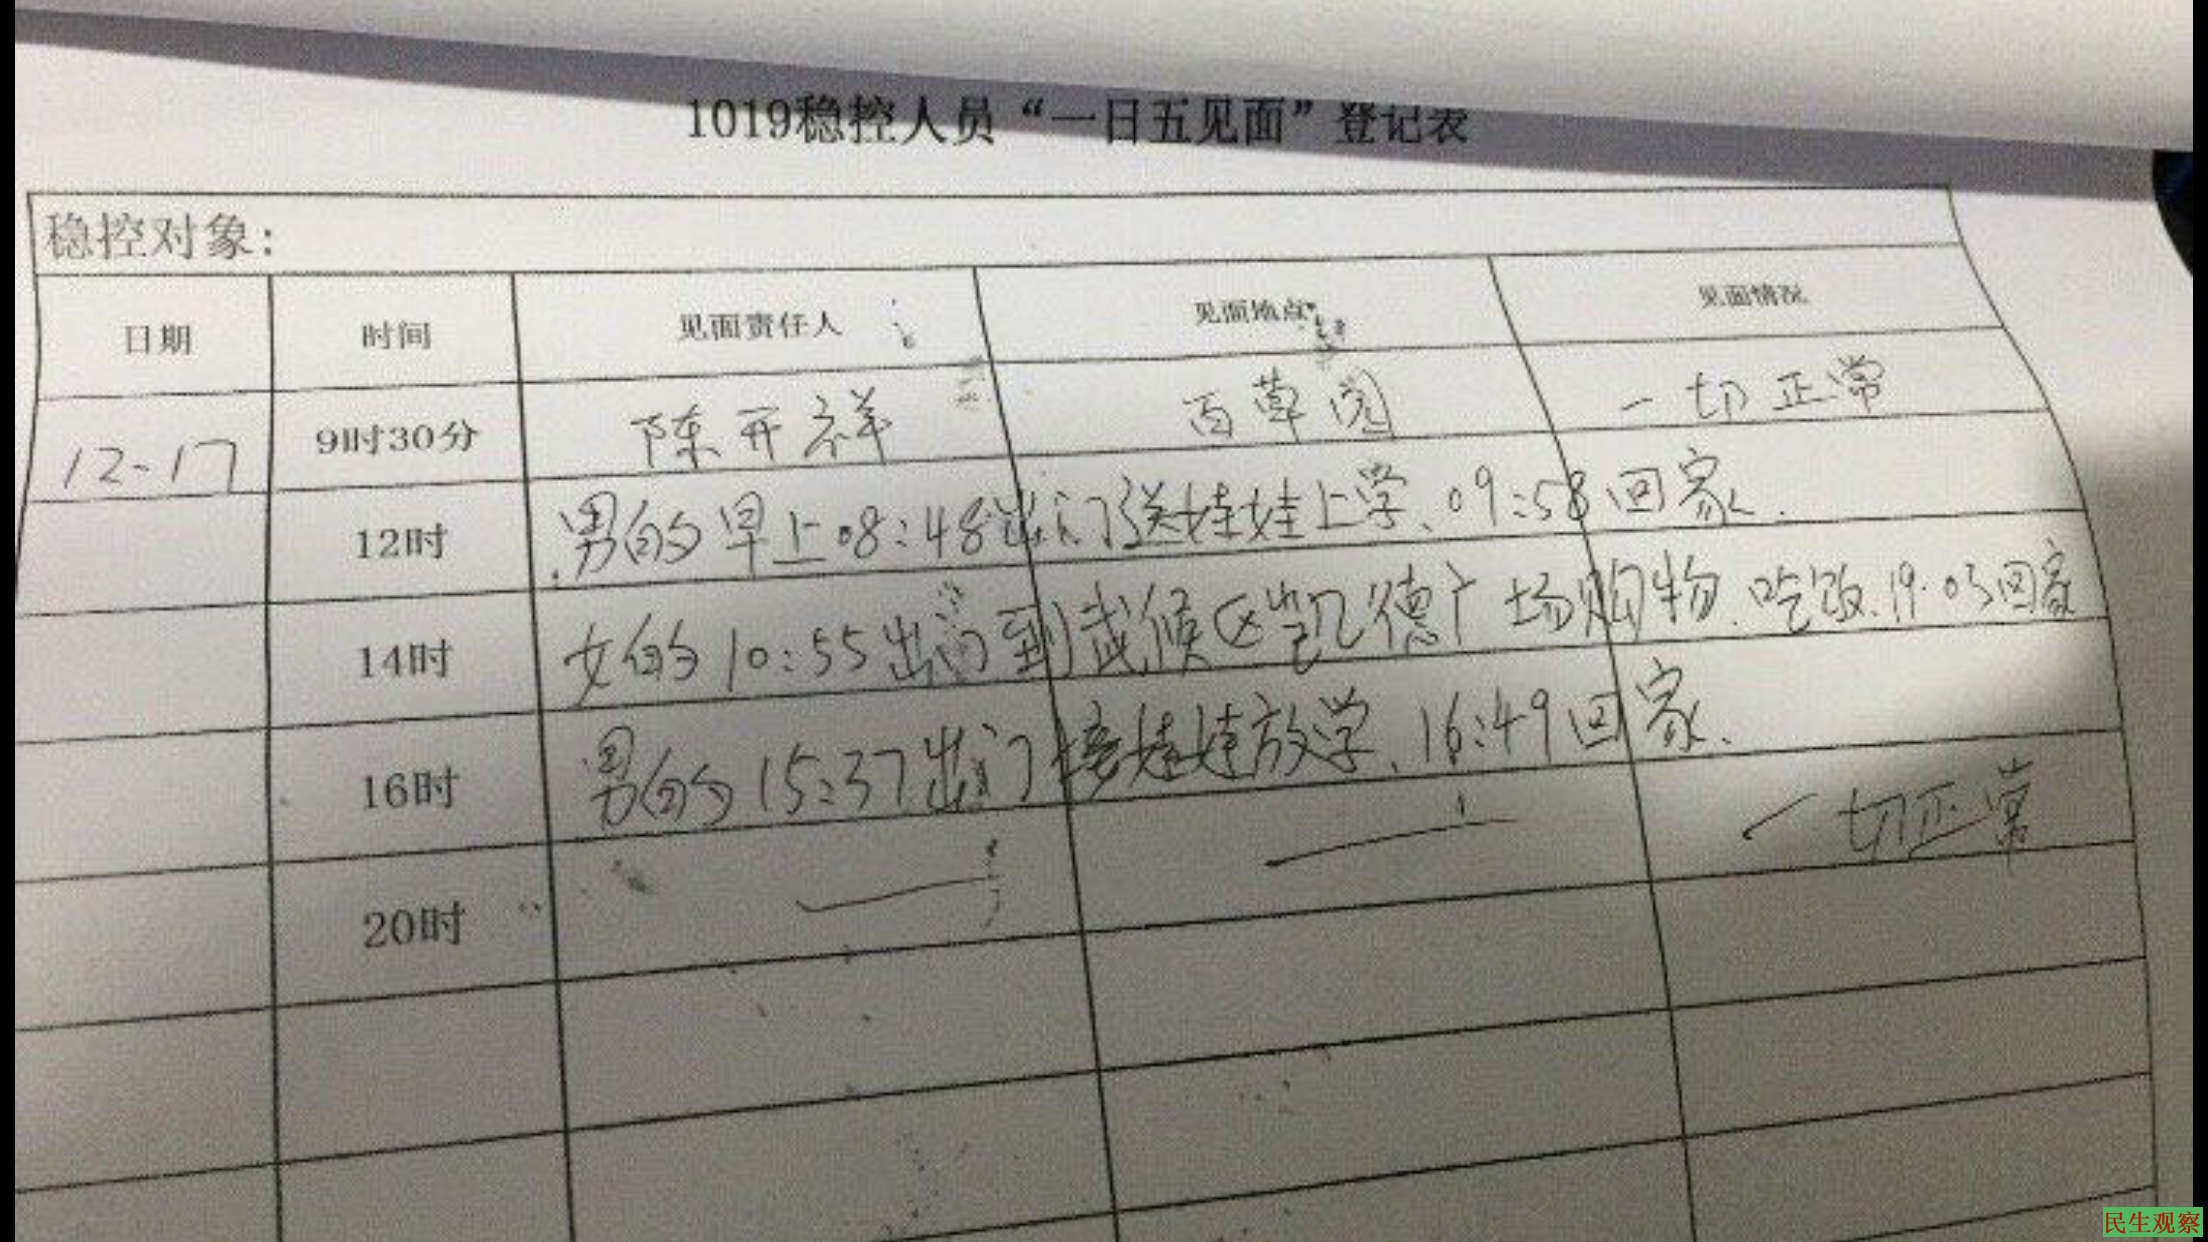 1019稳控人员“一日五见面”登记表
稳控对象：
日期 时间 见面责任人 见面地点 见面情况
12-17 9时30分 陈开祥 百草园 一切正常
12时 男的早上08:48出门送娃娃上学、09:58回家.
14时 女的10:55出门到武候区凯德广场购物、吃饭、19:03回家
16时 男的15:37出门接娃娃放学、16:49回家.
20时 一切正常
民生观察